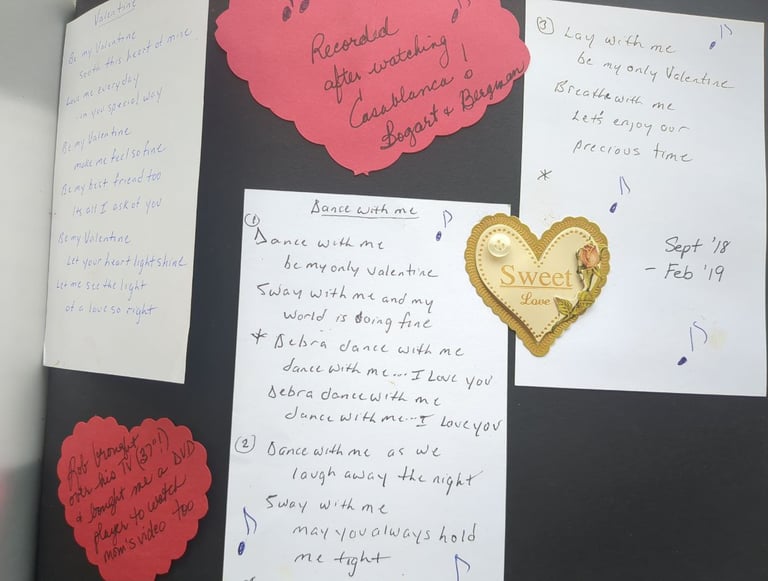 Valentine
Be my Valentine
Sooth this heart of mine
Love me everyday
in you special way
Be my Valentine
make me feel so fine
Be my best friend too
Its all I ask of you
Be my Valentine
Let your heart light shine
Let me see the light
of a love so right
Recorded
after watching
Casablanca!
Bogart & Bergman
Rob brought
over his TV (37"!)
& bought me a DVD
player to watch
mom's video too
Dance with me
① Dance with me
be my only valentine
Sway with me and my
world is doing fine
* Debra dance with me
dance with me... I Love you
Debra dance with me
dance with me... I Love you
② Dance with me as we
laugh away the night
Sway with me
may you always hold
me tight
Sweet
Love
③ Lay with me
be my only Valentine
Breathe with me
Let's enjoy our
precious time
*
Sept '18
- Feb '19